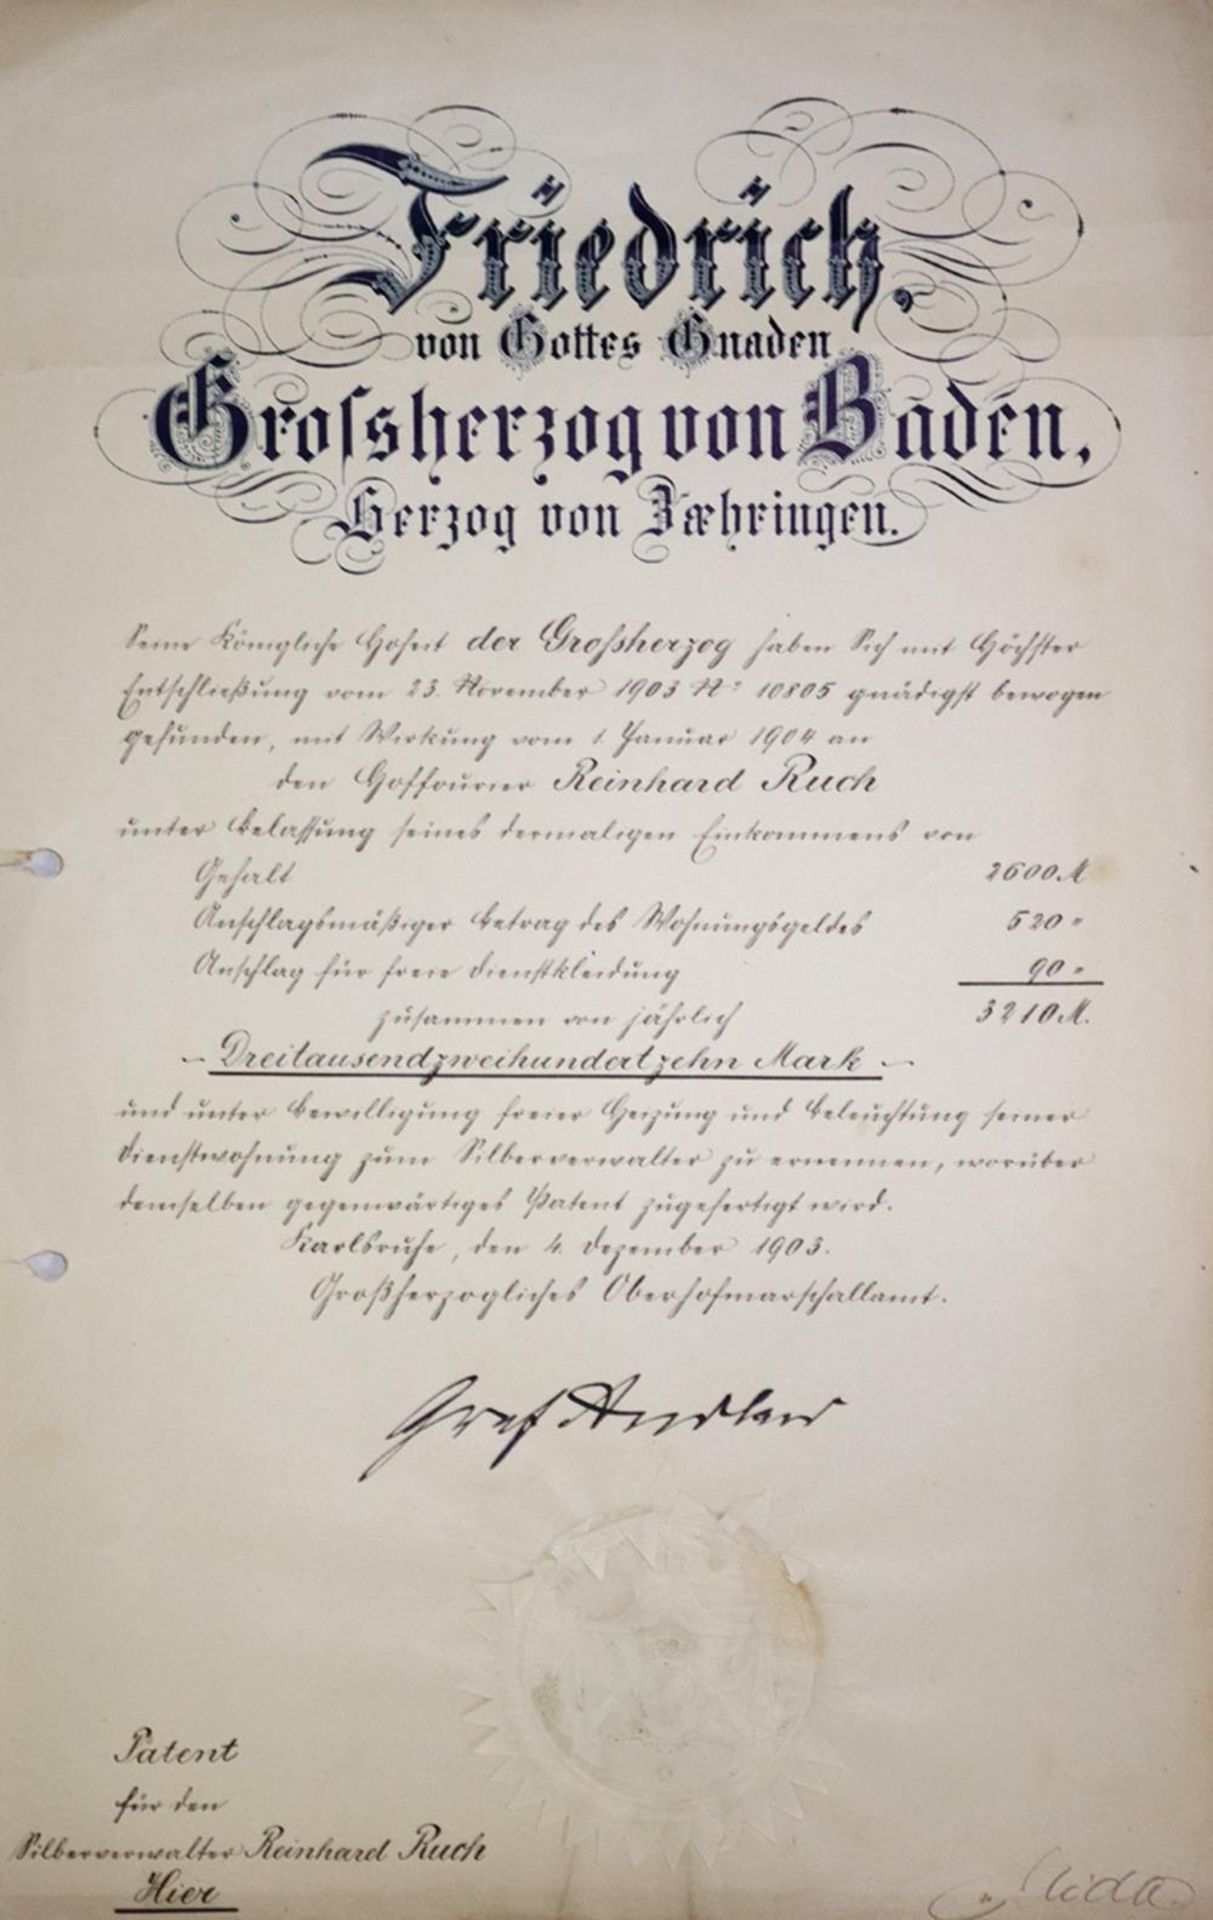 Friedrich,
von Gottes Gnaden
Grossherzog von Baden,
Herzog von Zæhringen.
Seine Königliche Hoheit der Großherzog haben Sich mit Höchster
Entschließung vom 23. November 1903 № 10805 gnädigst bewogen
gefunden, mit Wirkung vom 1. Januar 1904 an
den Hoffourier Reinhard Ruch
unter Belassung seines dermaligen Einkommens von
Gehalt 2600 M
Anschlagsmäßiger Betrag des Wohnungsgeldes 520 "
Anschlag für freie Dienstkleidung 90 "
zusammen von jährlich 3210 M.
~ Dreitausendzweihundertzehn Mark ~
und unter Bewilligung freier Heizung und Beleuchtung seiner
Dienstwohnung zum Silberverwalter zu ernennen, worüber
demselben gegenwärtiges Patent zugefertigt wird.
Karlsruhe, den 4. Dezember 1903.
Großherzogliches Oberhofmarschallamt.
Graf Andlaw
Patent
für den
Silberverwalter Reinhard Ruch
Hier